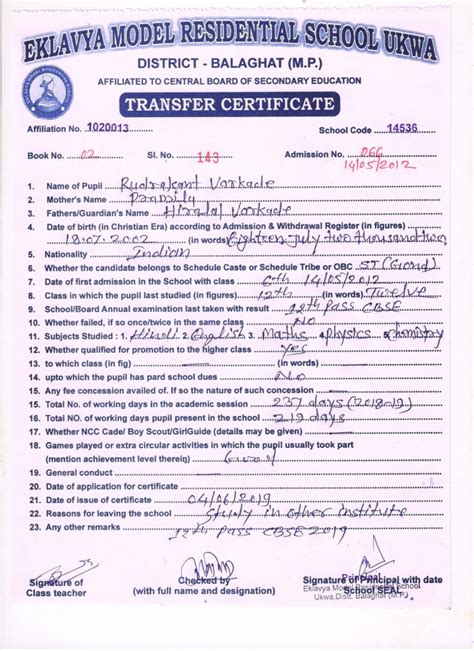 EKLAVYA MODEL RESIDENTIAL SCHOOL UKWA
DISTRICT - BALAGHAT (M.P.)
AFFILIATED TO CENTRAL BOARD OF SECONDARY EDUCATION
TRANSFER CERTIFICATE
Affiliation No. 1020013 School Code 14536
Book No. 02 Sl. No. 143 Admission No. 066
14/05/2012
1. Name of Pupil Rudrakant Varkade
2. Mother's Name
3. Fathers/Guardian's Name Hiralal Varkade
4. Date of birth (in Christian Era) according to Admission & Withdrawal Register (in figures)
18.07.2002 (in words) Eighteen July two thousand two
5. Nationality Indian
6. Whether the candidate belongs to Schedule Caste or Schedule Tribe or OBC ST (Gond)
7. Date of first admission in the School with class 6th 14/05/2012
8. Class in which the pupil last studied (in figures) 12th (in words) Twelve
9. School/Board Annual examination last taken with result 12th Pass CBSE
10. Whether failed, if so once/twice in the same class NO
11. Subjects Studied : 1. Hindi 2. English 3. Maths 4. physics 5. chemistry
12. Whether qualified for promotion to the higher class yes
13. to which class (in fig) (in words)
14. upto which the pupil has pard school dues No
15. Any fee concession availed of. If so the nature of such concession
15. Total No. of working days in the academic session 237 days (2018-019)
16. Total NO. of working days pupil present in the school 219 days
17. Whether NCC Cade/ Boy Scout/GirlGuide (details may be given)
18. Games played or extra circular activities in which the pupil usually took part
(mention achievement level thereig) Good
19. General conduct
20. Date of application for certificate
21. Date of issue of certificate 04/06/2019
22. Reasons for leaving the school Study in other institute
23. Any other remarks 12th Pass CBSE 2019
Signature of Class teacher
Checked by
(with full name and designation)
Signature of Principal with date
School SEAL
Principal
Eklavya Model Residential School
Ukwa, Distt. Balaghat (M.P.)